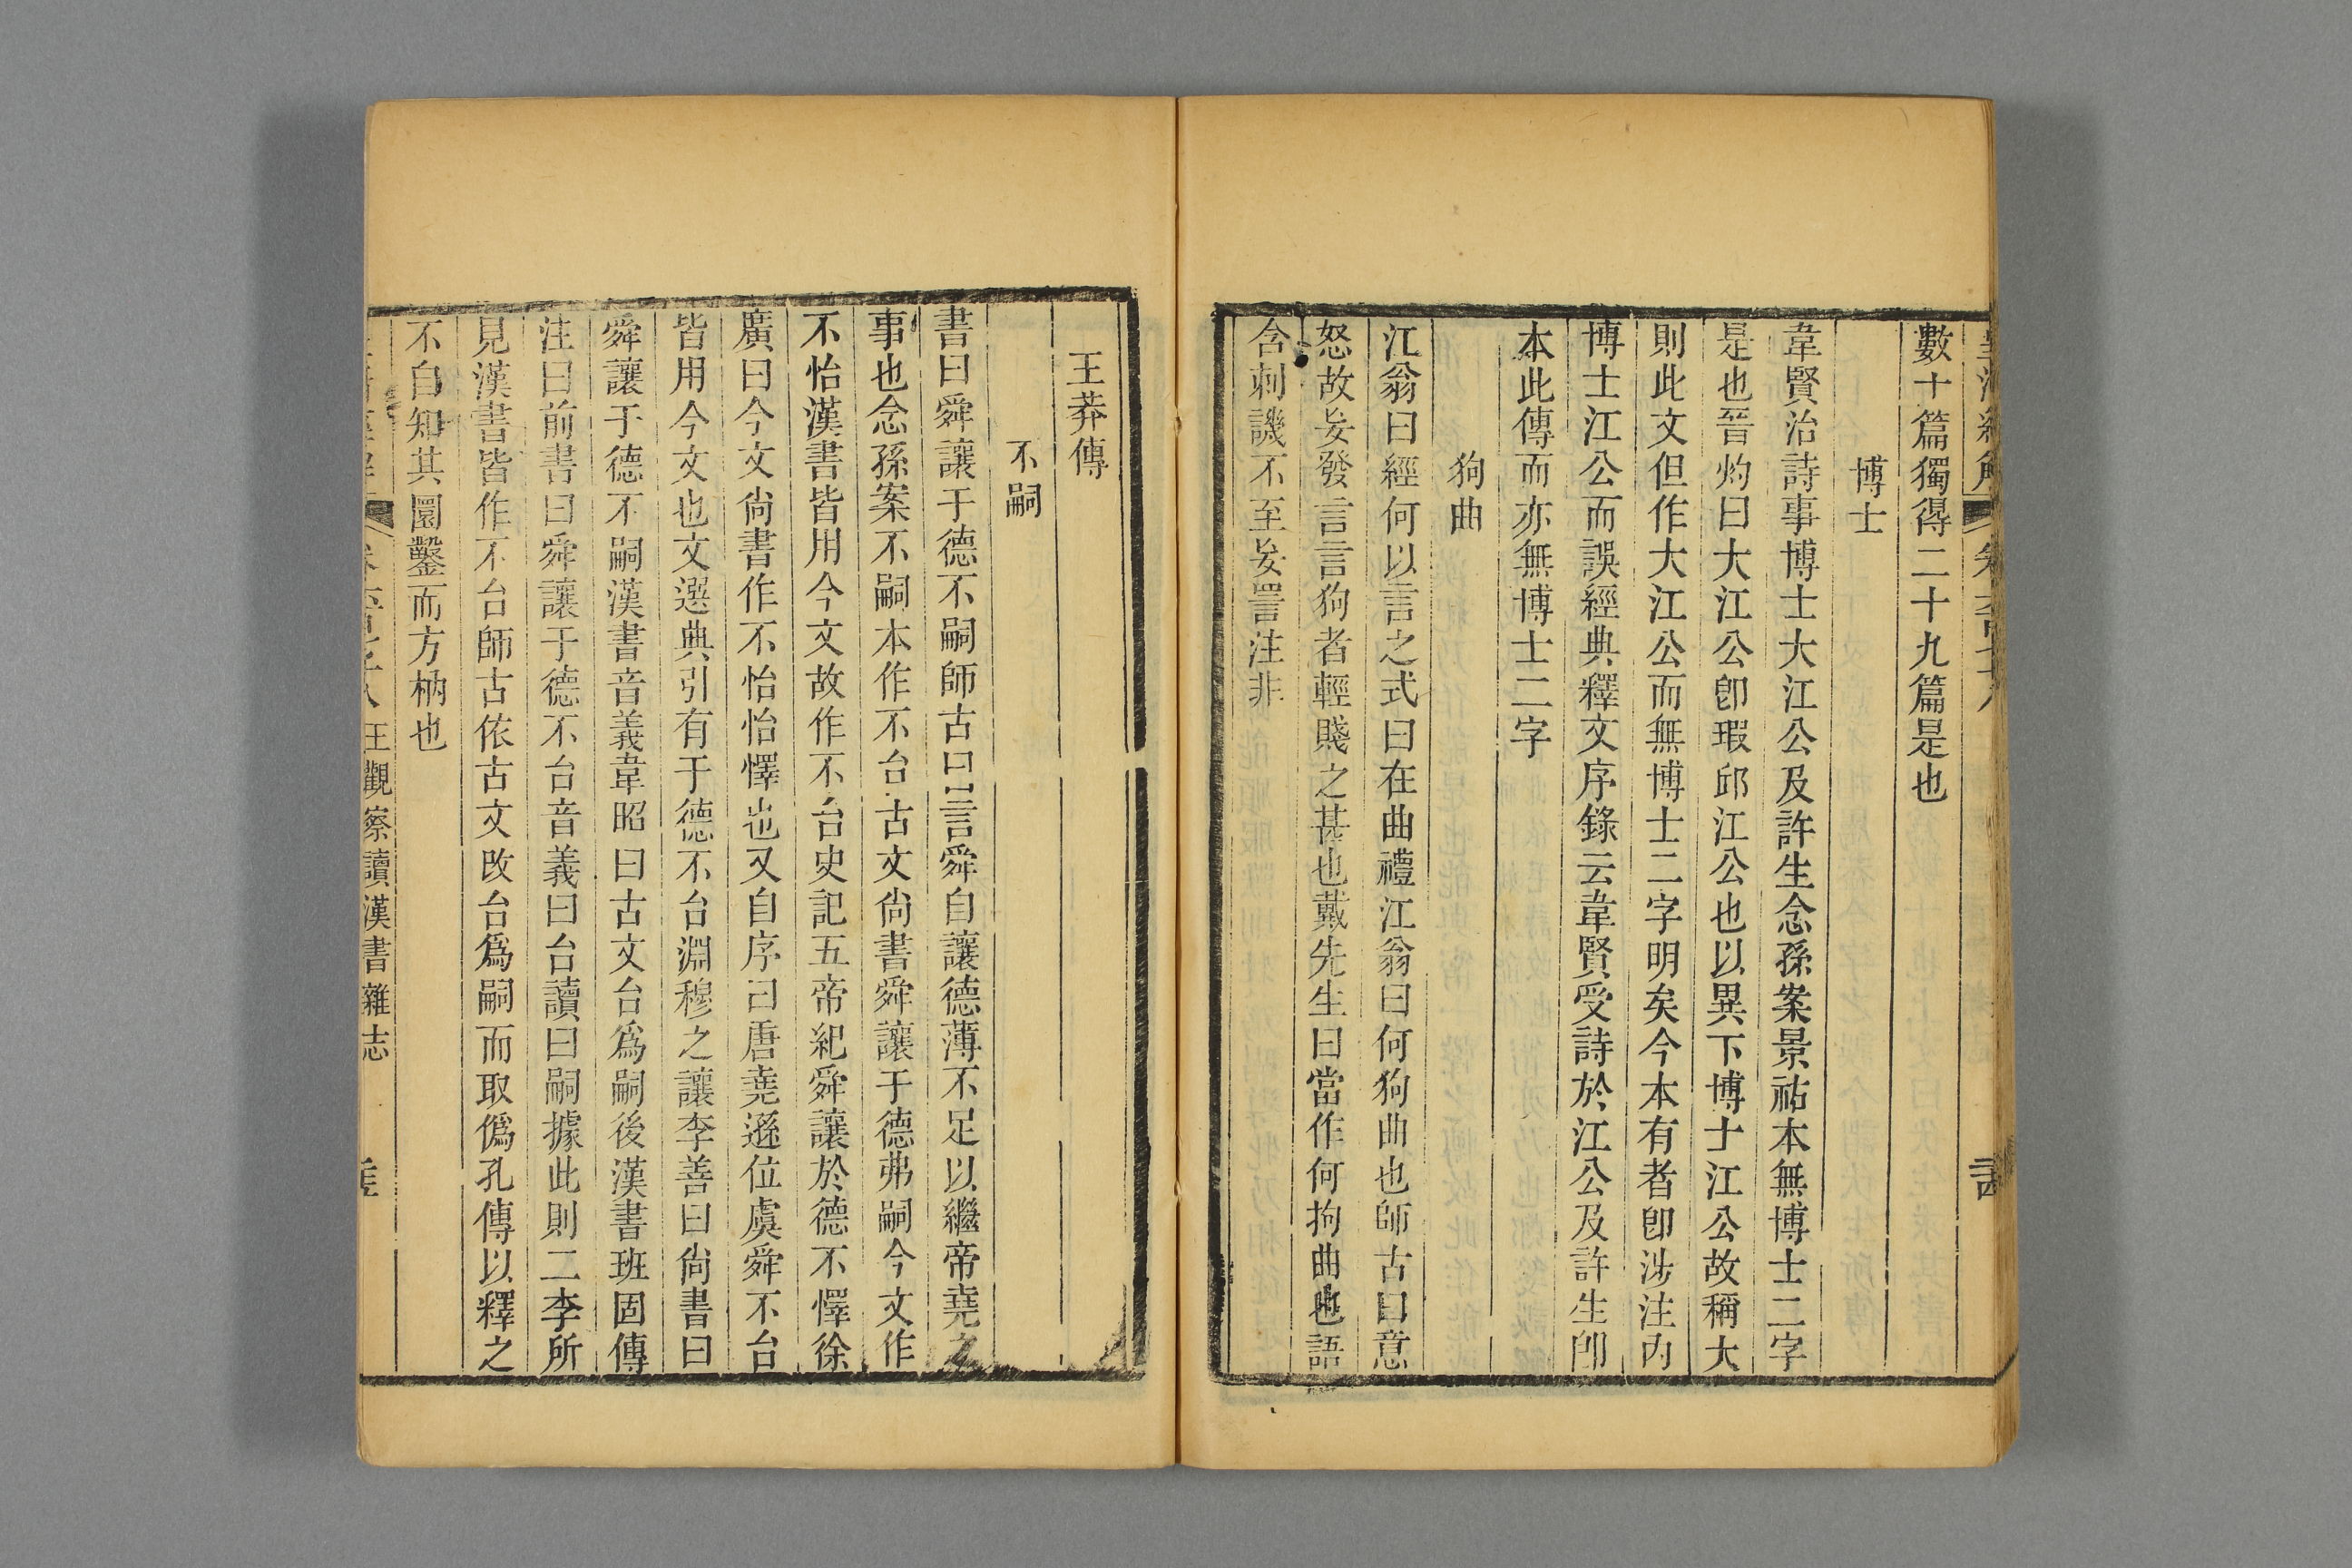 數十篇獨得二十九篇是也
博士
韋賢治詩事博士大江公及許生念孫案景祐本無博士二字
是也晉灼曰大江公卽瑕邱江公也以異下博士江公故稱大
則此文但作大江公而無博士二字明矣今本有者卽涉注內
博士江公而誤經典釋文序錄云韋賢受詩於江公及許生卽
本此傳而亦無博士二字
狗曲
江翁曰經何以言之式曰在曲禮江翁曰何狗曲也師古曰意
怒故妄發言言狗者輕賤之甚也戴先生曰當作何拘曲也語
含刺譏不至妄詈注非
王莽傳
不嗣
書曰舜讓于德不嗣師古曰言舜自讓德薄不足以繼帝堯之
事也念孫案不嗣本作不台古文尙書舜讓于德弗嗣今文作
不怡漢書皆用今文故作不台史記五帝紀舜讓於德不懌徐
廣曰今文尙書作不怡怡懌也又自序曰唐堯遜位虞舜不台
皆用今文也文選典引有于德不台淵穆之讓李善曰尙書曰
舜讓于德不嗣漢書音義韋昭曰古文台爲嗣後漢書班固傳
注曰前書曰舜讓于德不台音義曰台讀曰嗣據此則二李所
見漢書皆作不台師古依古文改台爲嗣而取僞孔傳以釋之
不自知其圜鑿而方枘也
王觀察讀漢書雜志